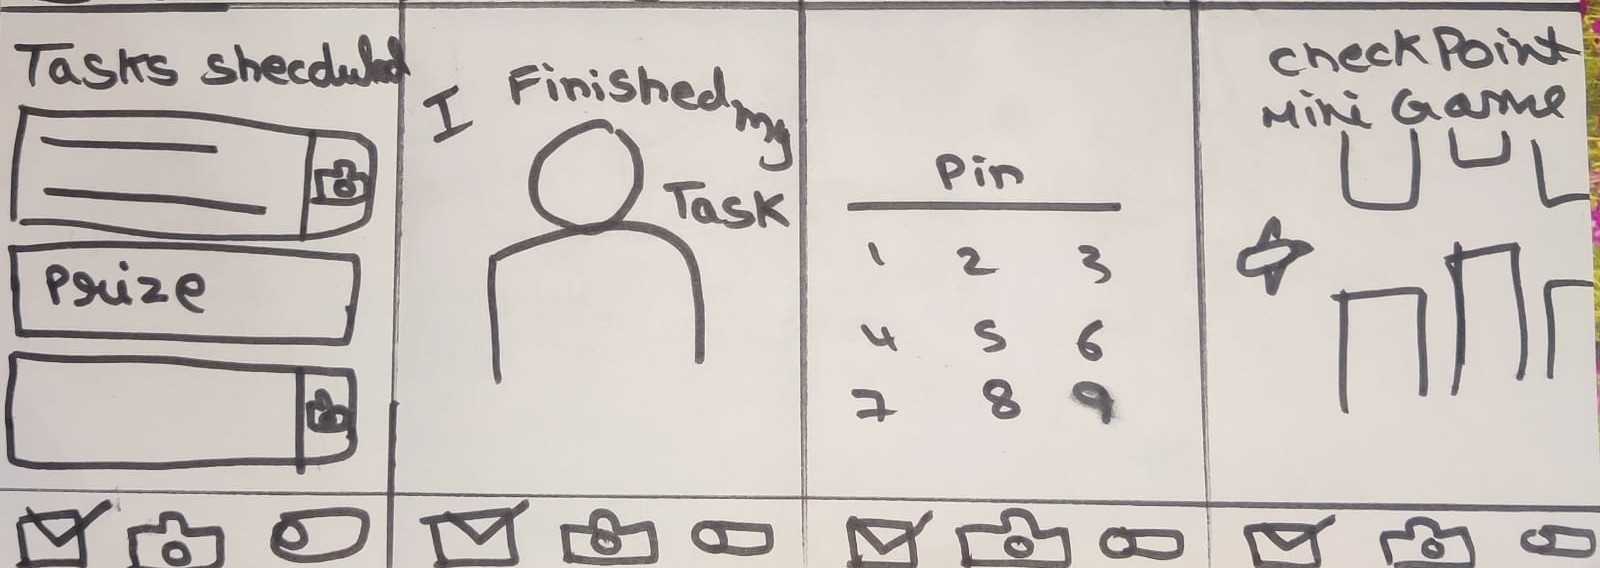 Tasks shecduled
Prize
I Finished my
Task
Pin
1 2 3
4 5 6
7 8 9
check Point
Mini Game